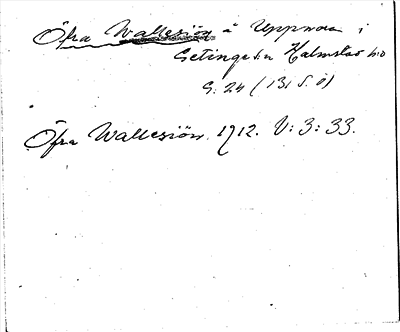 Öfra Wallesjön å Uppnora i
Getinge s:n Halmstad h:d
S. 24 (131 S. Ö)
Öfra Wallesjön. 1912. V: 3: 33.